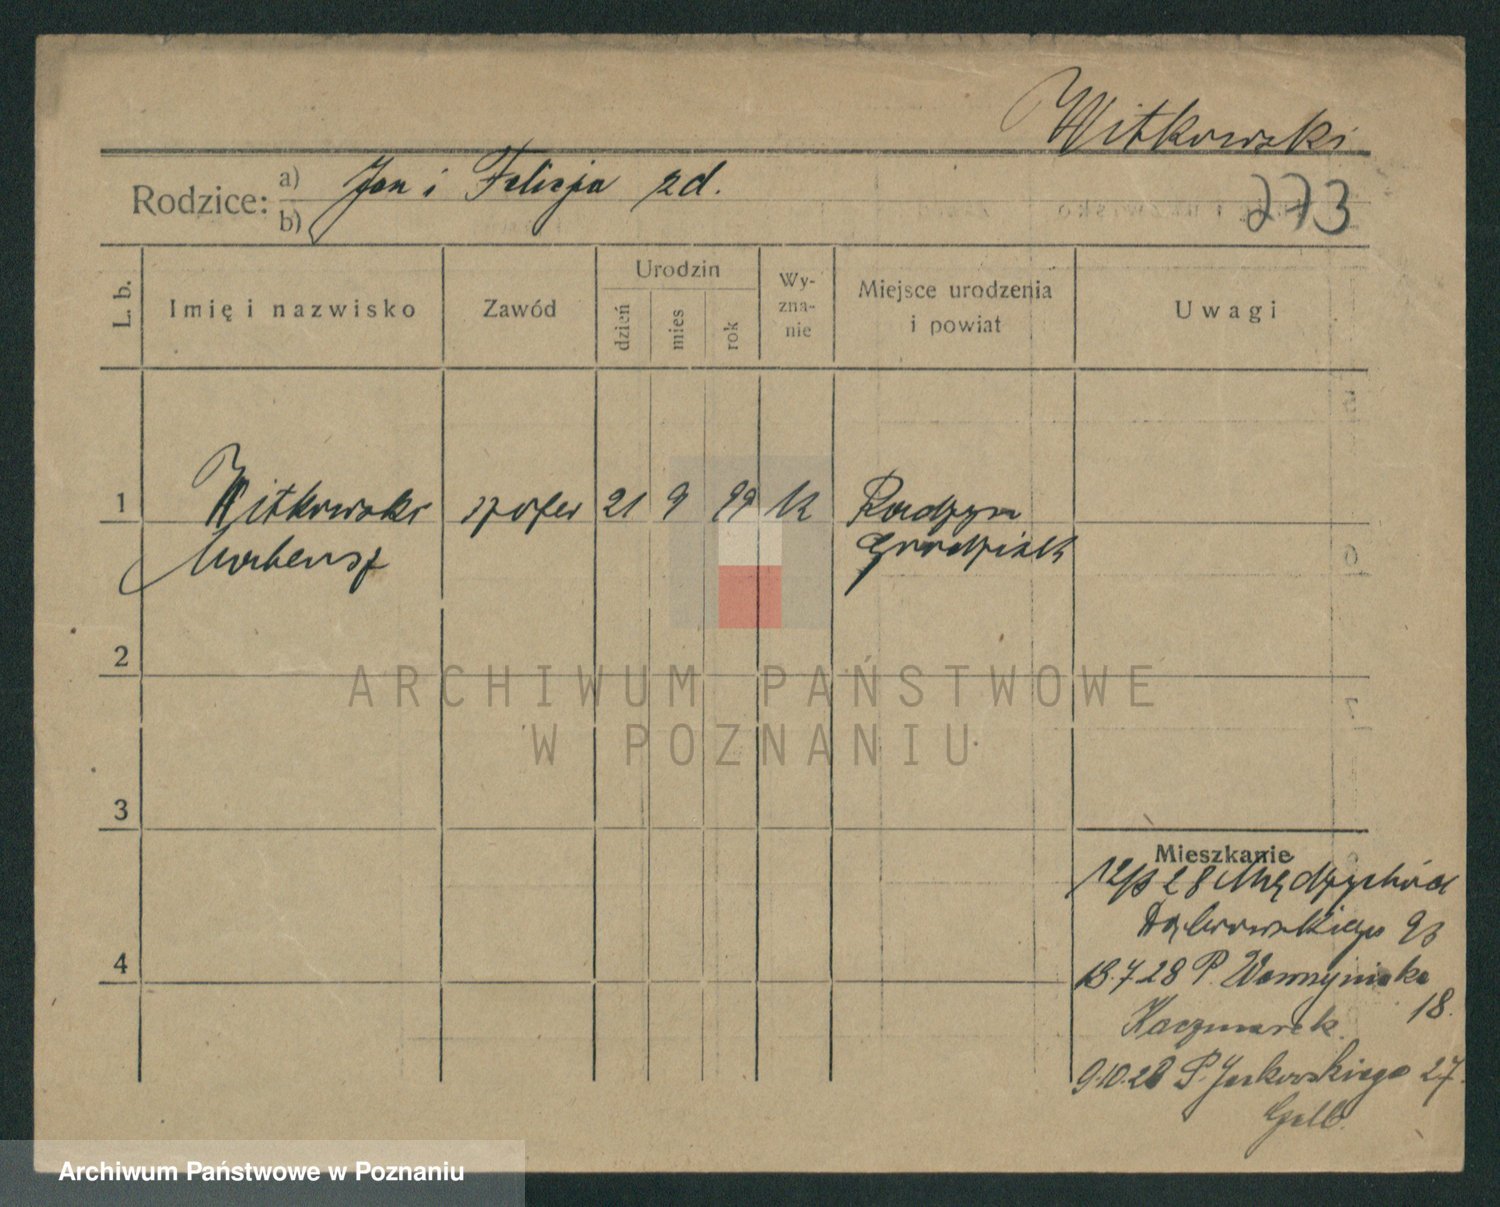 Witkowski
Rodzice: a) Jan i Felicja zd.
b)
273
L. b.
Imię i nazwisko
Zawód
Urodzin
dzień
mies
rok
Wy-
zna-
nie
Miejsce urodzenia
i powiat
Uwagi
1
Witkowski
szofer
21
9
99
k
Radzyn
Grodzisk
2
ARCHIWUM PAŃSTWOWE
W POZNANIU
3
Mieszkanie
28 Międzychód
Dąbrowskiego 93
4
13.7 28 P. Wawrzyniaka
18.
Kaczmarek
9.10.28 P. Jackowskiego 27.
Archiwum Państwowe w Poznaniu